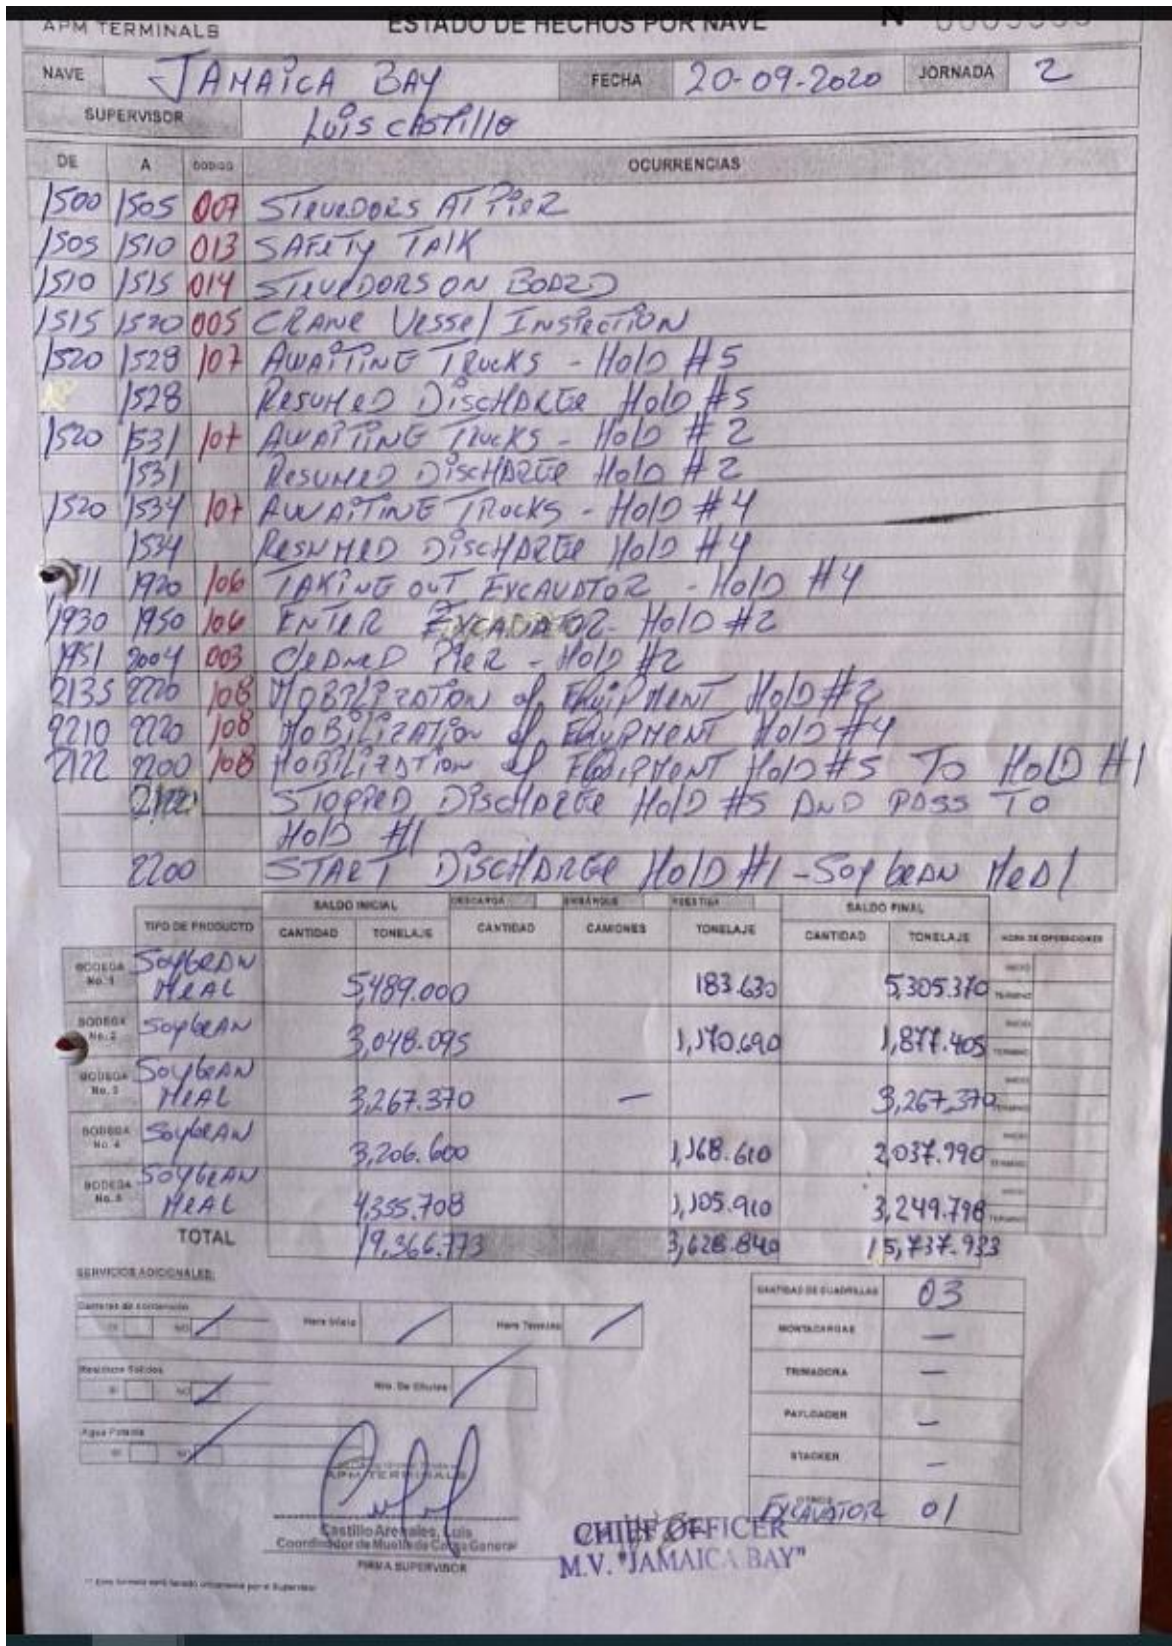 APM TERMINALS ESTADO DE HECHOS POR NAVE N
NAVE JAMAICA BAY FECHA 20-09-2020 JORNADA 2
SUPERVISOR Luis CASTILLO
DE A CODIGO OCURRENCIAS
1500 1505 007 STEVEDORS AT PIER
1505 1510 013 SAFETY TALK
1510 1515 014 STEVEDORS ON BOARD
1515 1520 005 CRANE VESSEL INSPECTION
1520 1528 107 AWAITING TRUCKS - HOLD #5
1528 RESUMED DISCHARGE HOLD #5
1520 1531 107 AWAITING TRUCKS - HOLD #2
1531 RESUMED DISCHARGE HOLD #2
1520 1534 107 AWAITING TRUCKS - HOLD #4
1534 RESUMED DISCHARGE HOLD #4
1920 106 TAKING OUT EXCAVATOR - HOLD #4
1930 1950 106 ENTER EXCAVATOR - HOLD #2
1951 2004 003 CLEANED PIER - HOLD #2
2135 2220 108 MOBILIZATION of EQUIPMENT HOLD #2
2210 2220 108 MOBILIZATION of EQUIPMENT HOLD #4
2122 2200 108 MOBILIZATION of EQUIPMENT HOLD #5 TO HOLD #1
STOPPED DISCHARGE HOLD #5 AND PASS TO
HOLD #1
2200 START DISCHARGE HOLD #1 - SOYBEAN MEAL
SALDO INICIAL DESCARGA EMBARQUE SALDO FINAL
TIPO DE PRODUCTO CANTIDAD TONELAJE CANTIDAD CAMIONES TONELAJE CANTIDAD TONELAJE HORA DE OPERACIONES
BODEGA No. 1 SOYBEAN MEAL 5,489.000 183.630 5,305.370 INICIO TERMINO
BODEGA No. 2 SOYBEAN 3,048.095 1,170.690 1,877.405 INICIO TERMINO
BODEGA No. 3 SOYBEAN MEAL 3,267.370 — 3,267.370 INICIO TERMINO
BODEGA No. 4 SOYBEAN 3,206.600 1,168.610 2,037.990 INICIO TERMINO
BODEGA No. 5 SOYBEAN MEAL 4,355.708 1,105.910 3,249.798 INICIO TERMINO
TOTAL 19,366.773 3,628.840 15,737.933
SERVICIOS ADICIONALES:
CANTIDAD DE CUADRILLAS 03
Barreras de contención
SI NO / Hora Inicio / Hora Termino /
MONTACARGAS —
TRIMADORA —
Residuos Solidos
SI NO / /
PAYLOADER —
Agua Potable
SI NO /
STACKER —
OTROS EXCAVATOR 01
APM TERMINALS
Castillo Arenales, Luis
Coordinador de Muelle de Carga General
FIRMA SUPERVISOR
CHIEF OFFICER
M.V. "JAMAICA BAY"
** Este formato será llenado únicamente por el Supervisor